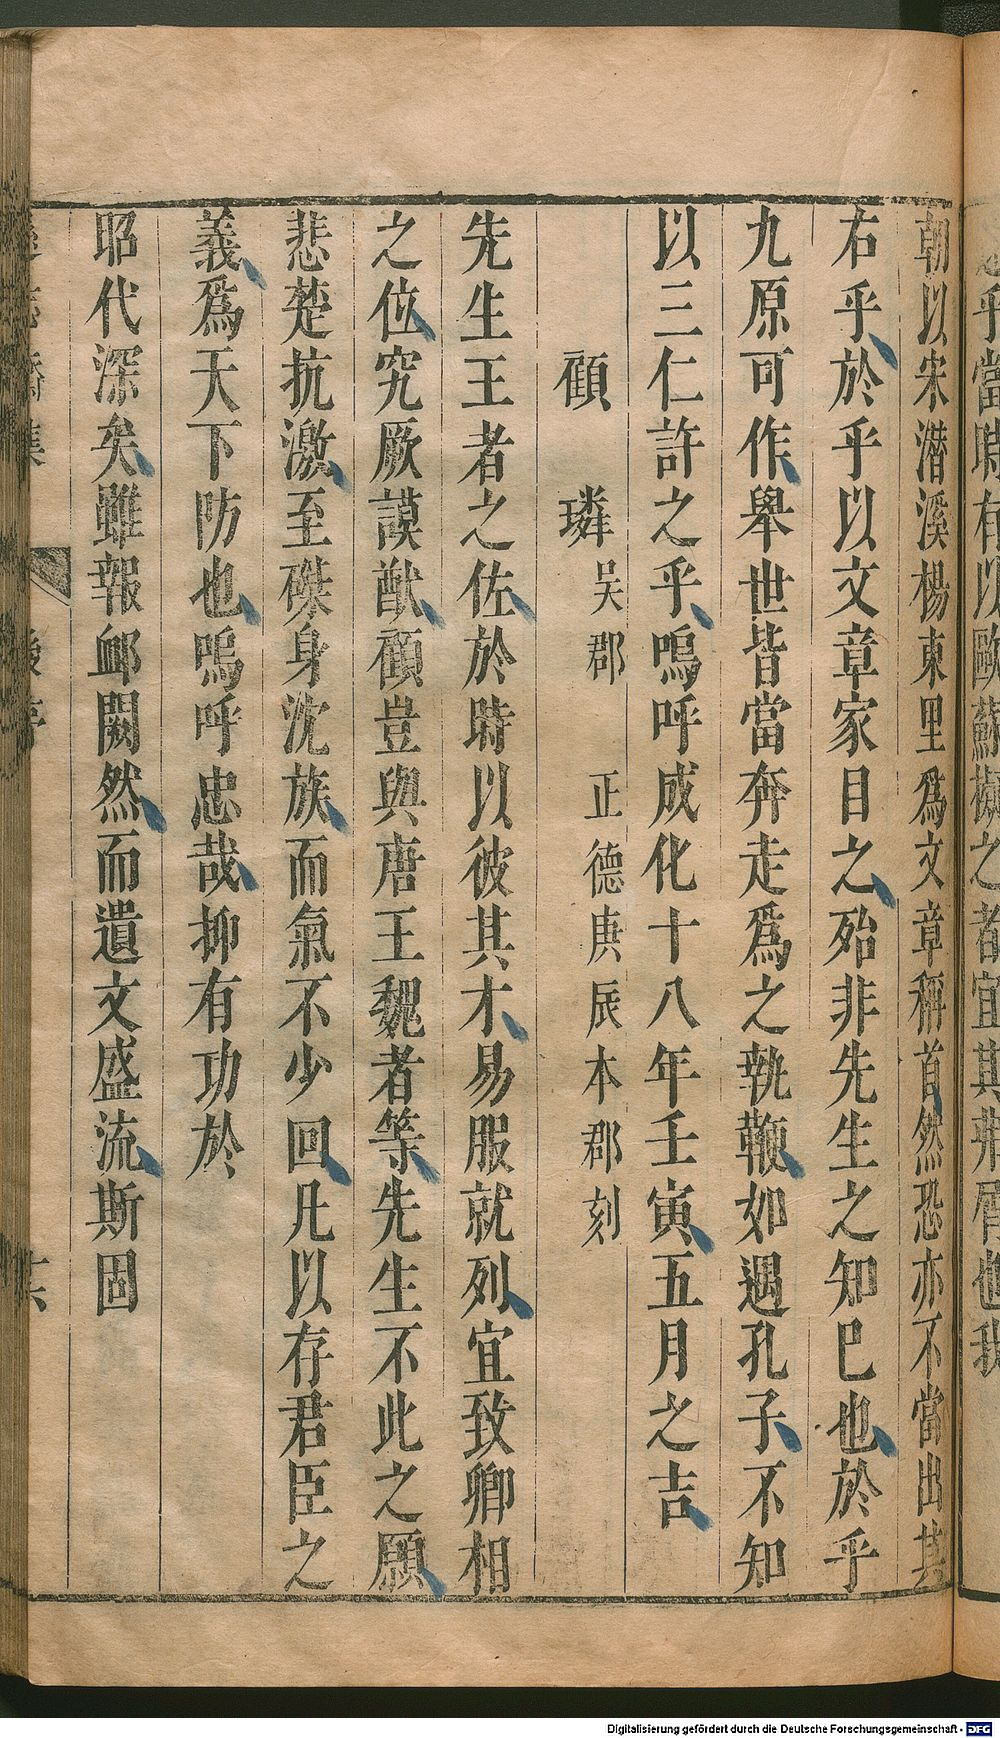 乎當時有以歐蘇擬之者宜其弗屑也我
朝以宋潛溪楊東里爲文章稱首然恐亦不當出其
右乎於乎以文章家目之殆非先生之知巳也於乎
九原可作舉世皆當奔走爲之執鞭如遇孔子不知
以三仁許之乎嗚呼成化十八年壬寅五月之吉
顧璘吳郡 正德庚辰本郡刻
先生王者之佐於時以彼其才易服就列宜致卿相
之位究厥謨猷顧豈與唐王魏者等先生不此之願
悲楚抗激至磔身沈族而氣不少回凡以存君臣之
義爲天下防也嗚呼忠哉抑有功於
昭代深矣雖報衈闕然而遺文盛流斯固
後序
Digitalisierung gefördert durch die Deutsche Forschungsgemeinschaft - DFG